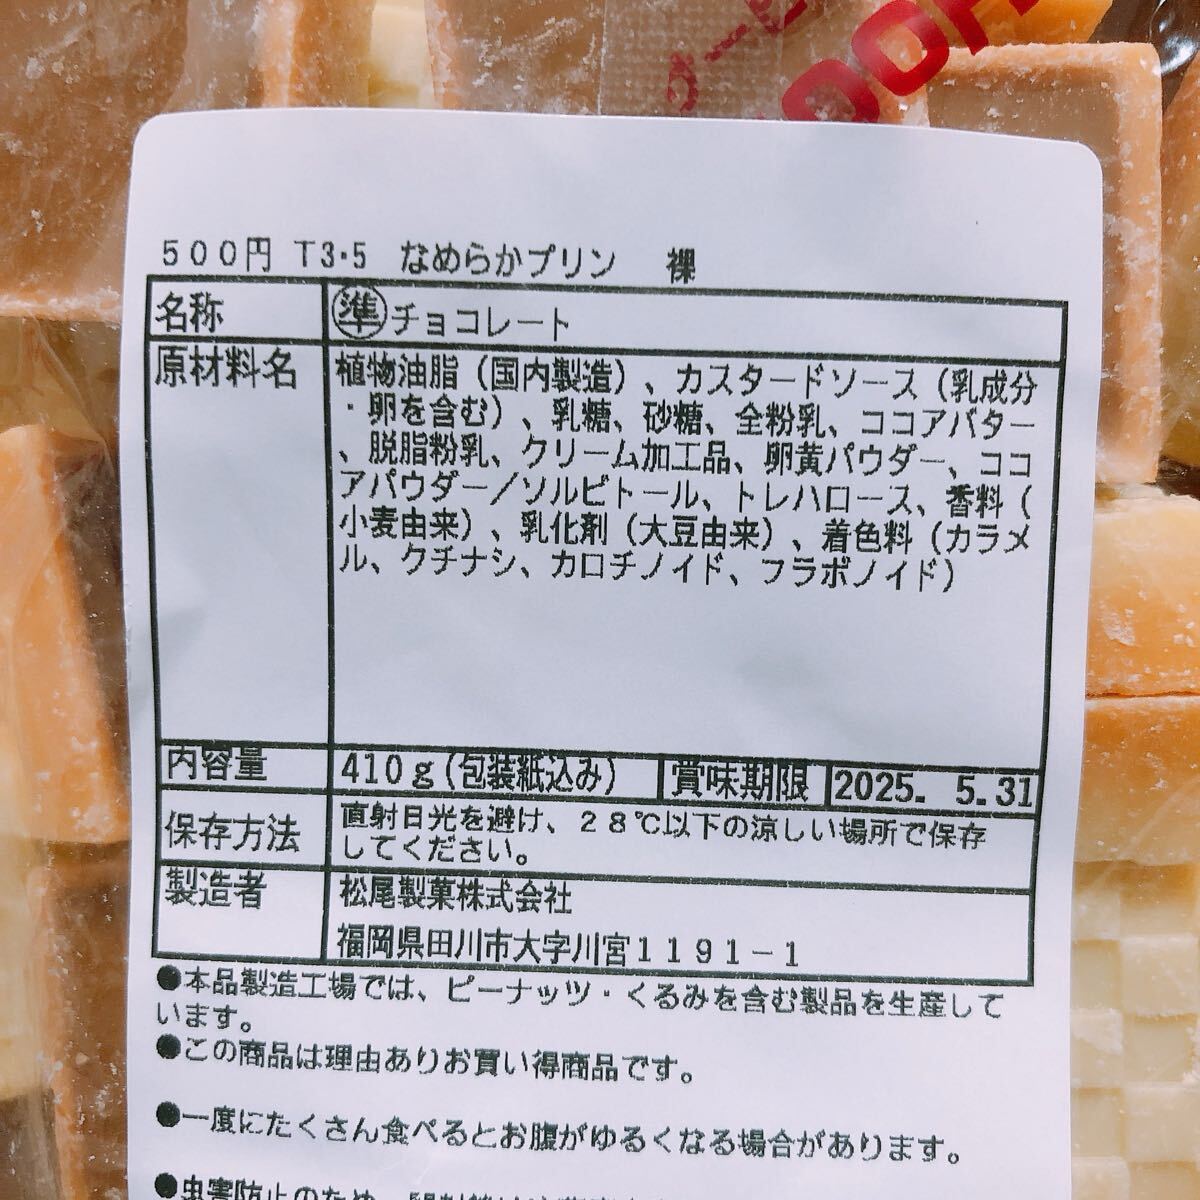 500円 T3・5 なめらかプリン 裸
名称 ㊜チョコレート
原材料名 植物油脂（国内製造）、カスタードソース（乳成分
・卵を含む）、乳糖、砂糖、全粉乳、ココアバター
、脱脂粉乳、クリーム加工品、卵黄パウダー、ココ
アパウダー／ソルビトール、トレハロース、香料（
小麦由来）、乳化剤（大豆由来）、着色料（カラメ
ル、クチナシ、カロチノイド、フラボノイド）
内容量 410g（包装紙込み） 賞味期限 2025. 5.31
保存方法 直射日光を避け、28℃以下の涼しい場所で保存
してください。
製造者 松尾製菓株式会社
福岡県田川市大字川宮1191－1
●本品製造工場では、ピーナッツ・くるみを含む製品を生産して
います。
●この商品は理由ありお買い得商品です。
●一度にたくさん食べるとお腹がゆるくなる場合があります。
●虫害防止のため、開封後は